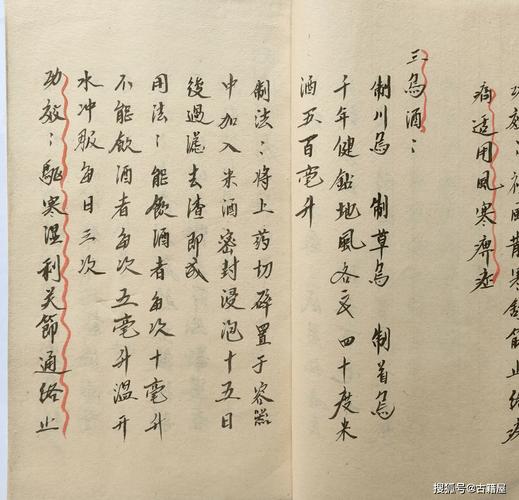 散寒舒筋
痛适用风寒痹症
三乌酒：
制川乌 制草乌 制首乌
千年健钻地风各 四十度米
酒五百毫升
制法：将上药切碎置于容器
中加入米酒密封浸泡十五日
後過濾去渣即成
用法：能飲酒者每次十毫升
不能飲酒者每次五毫升温开
水冲服每日三次
功效：驅寒湿利关節通络止
搜狐号@古籍屋